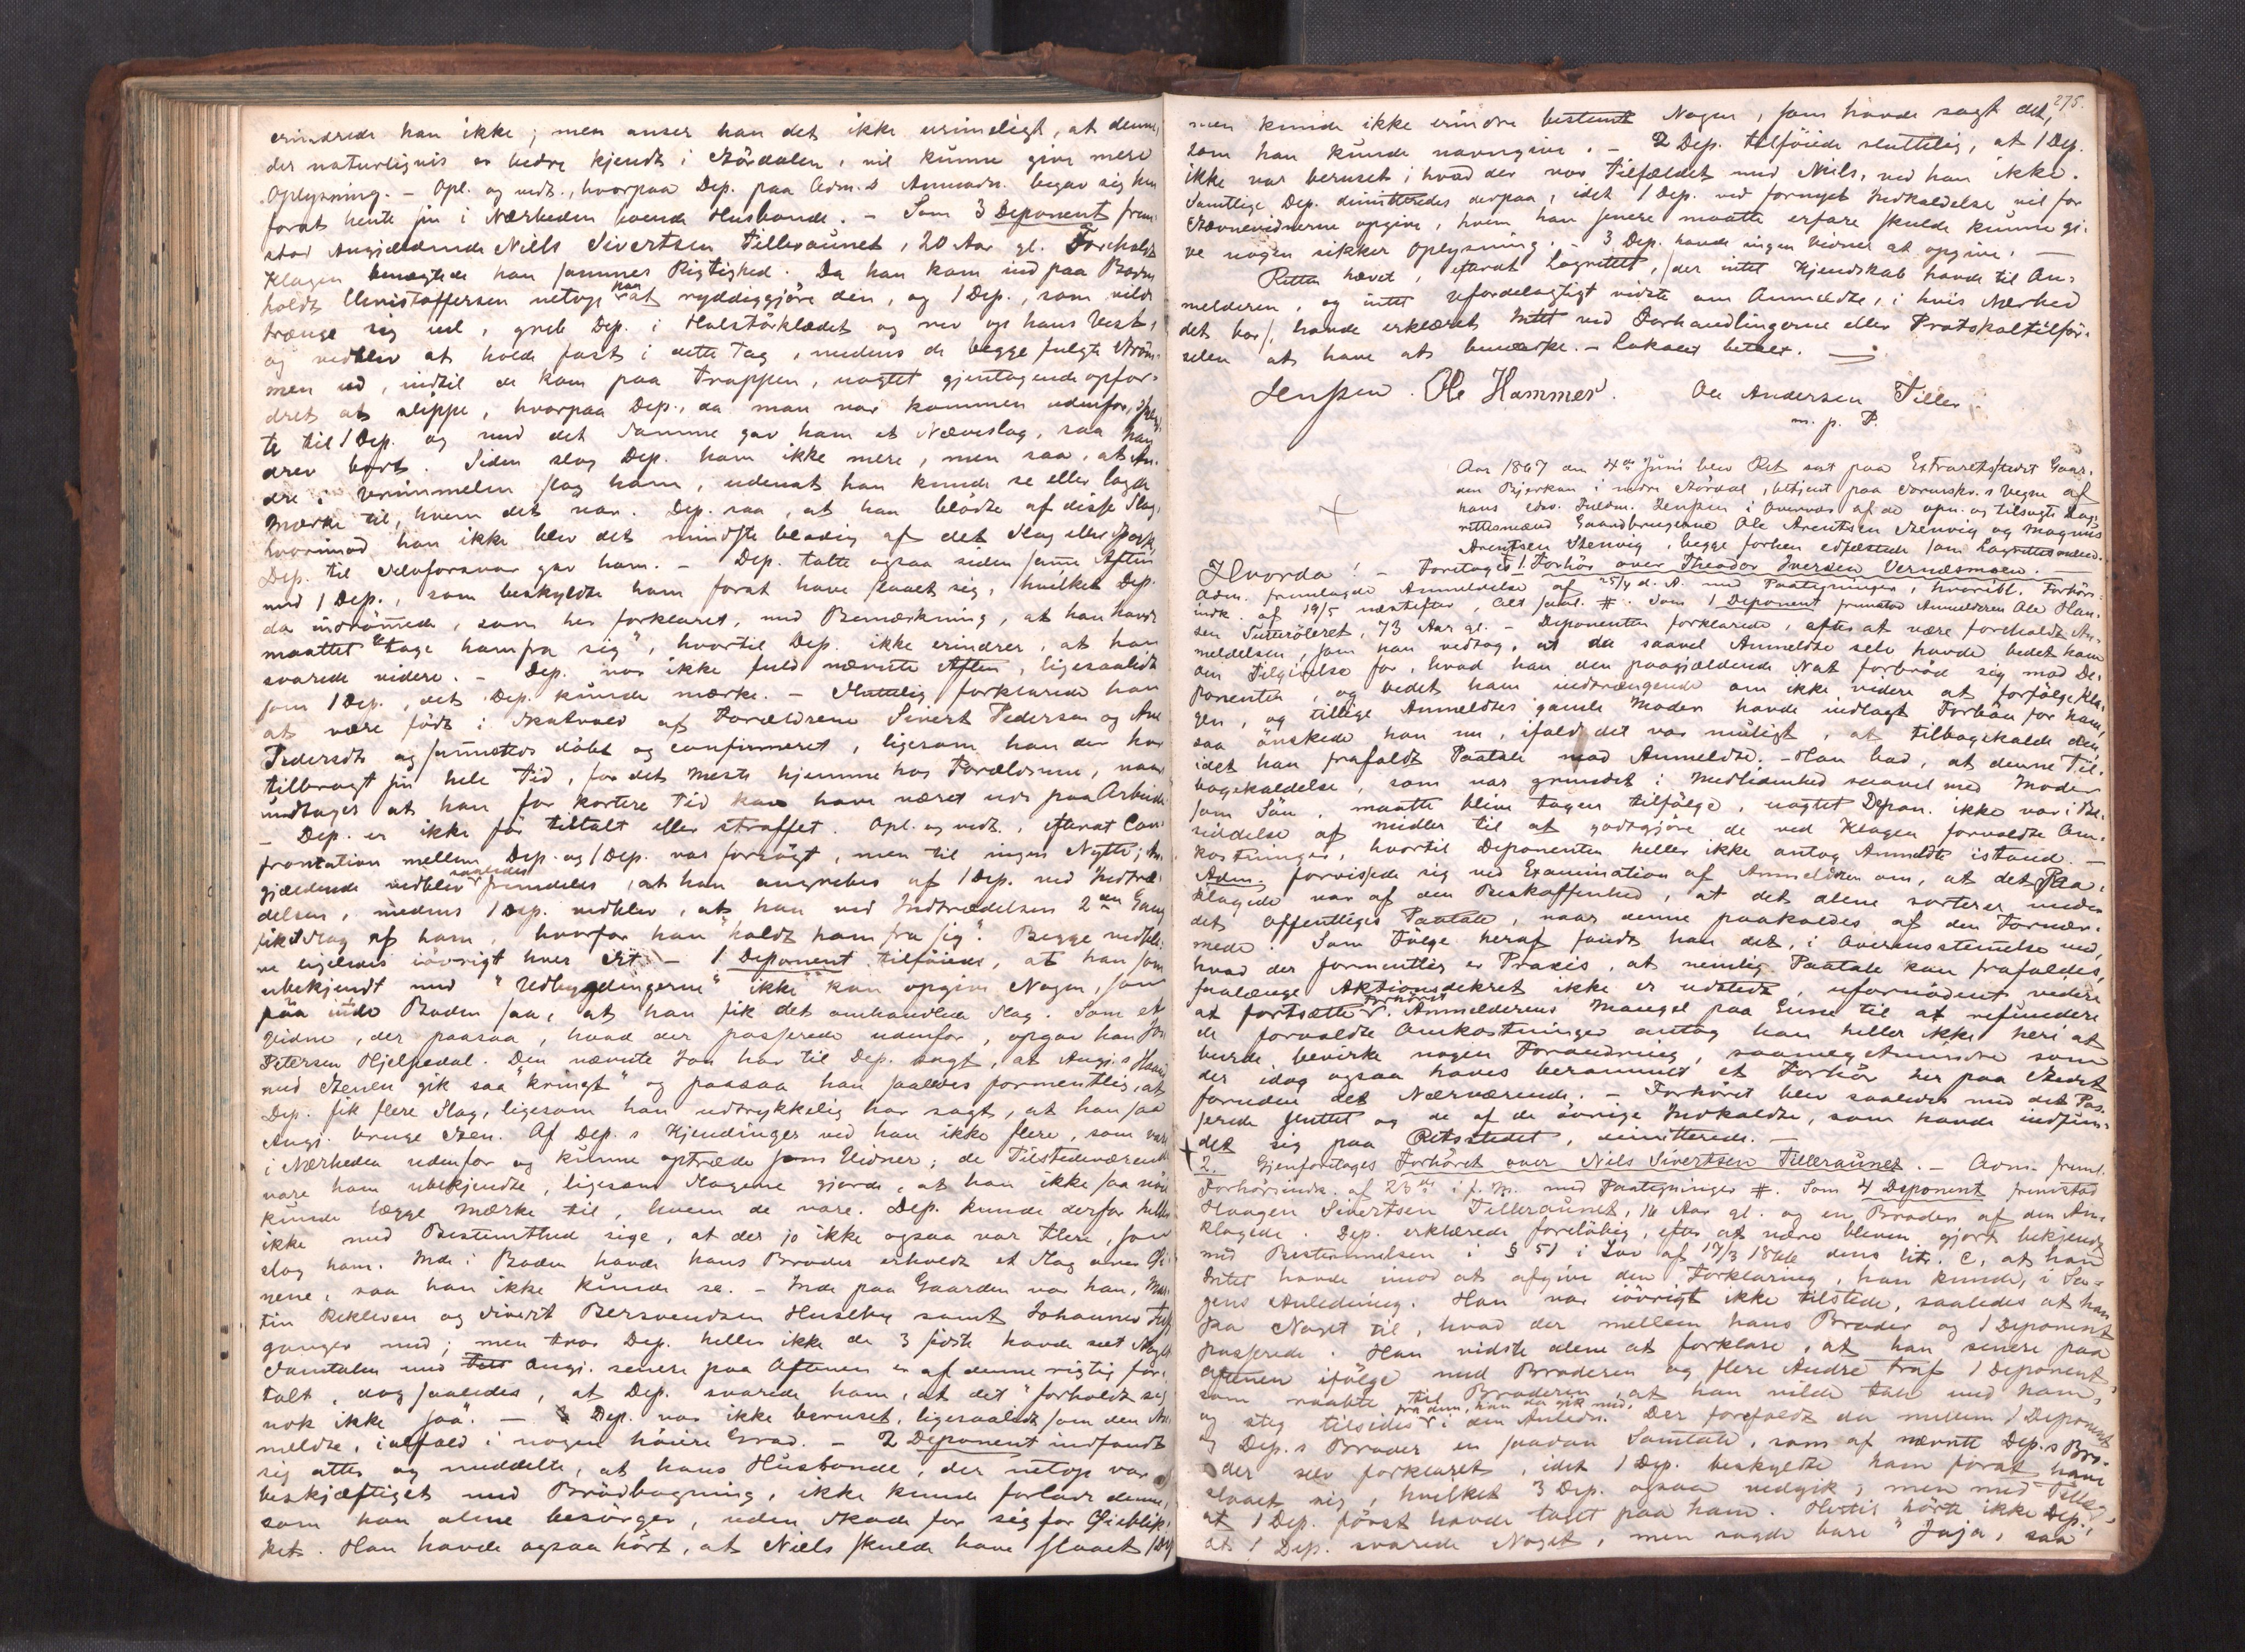 erindrede han ikke; men anser han det ikke urimeligt, at denne,
der naturligvis er bedre kjendt i Stördalen, vil kunne give mere
Oplysning. – Opl. og vedt., hvorpaa Dep. paa Adm.s Anmodn. begav sig hen
forat hente sin i Nærheden boende Husbonde. – Som 3 Deponent frem-
stod Angjældende Niels Sivertsen Tilleraunet, 20 Aar gl. Foreholdt
Klagen benægtede han sammes Rigtighed. Da han kom ind paa Boden
holdt Christoffersen netop paa at ryddiggjöre den, og 1 Dep., som vilde
trænge sig ud, greb Dep. i Halstörklædet og rev op hans Vest,
og vedblev at holde fast i dette Tag, medens de begge fulgte Ström-
men ud, indtil de kom paa Trappen, uagtet gjentagende opfor-
dret at slippe, hvorpaa Dep., da man var kommen udenfor,
te til 1 Dep. og med det samme gav ham et Næveslag, saa han
drev bort. Siden slog Dep. ham ikke mere, men saa, at An-
dre i Vrimmelen slog ham, udenat han kunde se eller lagde
Mærke til, hvem det var. Dep. saa, at han blödte af disse Slag,
hvorimod han ikke blev det mindste blodig af det Slag eller
Dep. til Selvforsvar gav ham. – Dep. talte ogsaa siden samme Aften
med 1 Dep., som beskyldte ham forat have slaaet sig, hvilket Dep.
da indrømmede, som her forklaret, med Bemærkning, at han havde
maattet "tage ham fra sig", hvortil Dep. ikke erindrer, at han
svarede videre. – Dep. var ikke fuld nævnte Aften, ligesaalidt
som 1 Dep., det Dep. kunde mærke. – Sluttelig forklarede han
at være födt i Skatvold af Forældrene Sivert Pedersen og Ane
Pedersdtr og sammesteds döbt og confirmeret, ligesom han der har
tilbragt sin hele Tid, for det Meste hjemme hos Forældrene, naar
undtages at han for kortere Tid kan have været ude paa Arbeide
– Dep. er ikke för tiltalt eller straffet. Opl. og vedt., efterat Con-
frontation mellem Dep. og 1 Dep. var forsögt, men til ingen Nytte; An-
gjældende vedblev saaledes fremdeles, at han angrebes af 1 Dep. ved Indtræ-
delsen, medens 1 Dep. vedblev, at han ved Indtrædelsen 2den Gang
fik et Slag af ham, hvorfor han "holdt ham fra sig". Begge vedbli-
ve ligeledes iövrigt hver Sit – 1 Deponent tilföiede, at han som
ubekjendt med "Udbygdingerne" ikke kan opgive Nogen, som
paa inde Boden saa, at han fik det omhandlede Slag. Som et
Vidne, der paasaa, hvad der passerede udenfor, opgav han Jon
Petersen Hjelpedal. Den nævnte Jon har til Dep. sagt, at Angj.s Haand
med Stenen gik saa "kringt" og paasaa han saaledes formentlig, at
Dep. fik flere Slag, ligesom han udtrykkelig har sagt, at han saa
Angj. bruge Sten. Af Dep.s Kjendinger ved han ikke flere, som var
i Nærheden udenfor og kunne optræde som Vidner; de Tilstedeværende
vare ham ubekjendte, ligesom Slagene gjorde, at han ikke saa nöie
kunde lægge Mærke til, hvem de vare. Dep. kunde derfor heller
ikke med Bestemthed sige, at der jo ikke ogsaa var Flere, som
slog ham. Inde i Boden havde hans Broder erholdt et Slag over Öi-
nene, saa han ikke kunde se. – Inde paa Gaarden var han, Mar-
tin Rekleven og Sivert Bersvendsen Huseby samt Johannes
ganger med; men tror Dep. heller ikke de 3 første havde seet Noget
Samtalen med Angj. senere paa Aftenen er af denne rigtig for-
talt, dog saaledes, at Dep. svarede ham, at det "forholdt sig
nok ikke saa". – Dep. var ikke beruset, ligesaalidt som den An-
meldte, ialfald i nogen höiere Grad. – 2 Deponent indfandt
sig atter og meddelte, at hans Husbonde, der netop var
beskjæftiget med Brödbagning, ikke kunde forlade denne,
som han alene besörger, uden Skade for sig for Öieblik-
ket. Han havde ogsaa hört, at Niels skulde have slaaet 1 Dep
275.
men kunde ikke erindre bestemt Nogen, som havde sagt det,
som han kunde navngive. – 2 Dep. tilföiede sluttelig, at 1 Dep.
ikke var beruset; hvad der var Tilfældet med Niels, ved han ikke.
Samtlige Dep. dimitteredes derpaa, idet 1 Dep. ved fornyet Indkaldelse vil for
Stævnevidnerne opgive, hvem han senere maatte erfare skulde kunne gi-
ve nogen sikker Oplysning. – 3 Dep. havde ingen Vidner at opgive. –
Retten hævet, efterat Lagrettet, (der intet Kjendskab havde til An-
melderen, og intet ufordelagtigt vidste om Anmeldte, i hvis Nærhed
det bor), havde erklæret Intet ved Forhandlingerne eller Protokoltilför-
selen at have at bemærke. – Lokalet betalt.
Jenssen. Ole Hammer. Ole Andersen Tiller
m. p. P.
Aar 1867 den 4de Juni blev Ret sat paa Extraretsstedet Gaar-
den Bjerkan i nedre Stördal, betjent paa Sorenskr.s Vegne af
hans edsv. Fuldm. Jenssen i Overvær af de opn. og tilsagte Lag-
rettesmænd Gaardbrugerne Ole Arentsen Stenvig og Magnus
Arentsen Stenvig, begge forhen edfæstede som Lagrettesmænd.
Hvorda! – Foretoges 1. Forhör over Theodor Iversen Vernæsmoen. –
Adm. fremlagde Anmeldelse af 25/4 d. A. med Paategninger, hvoribl. Forhörs-
indk. af 19/5 næstefter, Alt saal. #. Som 1 Deponent fremstod Anmelderen Ole Han-
sen Sutteröleret, 73 Aar gl. – Deponenten forklarede, efter at være foreholdt An-
meldelsen, som han vedtog, at da saavel Anmeldte selv havde bedet ham
om Tilgivelse for, hvad han den paagjældende Nat forbröd sig mod De-
ponenten, og bedet ham indtrængende om ikke videre at forfölge Kla-
gen, og tillige Anmeldtes gamle Moder havde indlagt Forbön for ham,
saa önskede han nu, ifald det var muligt, at tilbagekalde den
idet han frafaldt Paatale mod Anmeldte. – Han bad, at denne Til-
bagekaldelse, som var grundet i Medlidenhed saavel med Moder
som Sön, maatte blive tagen tilfölge, uagtet Depon. ikke var i Be-
siddelse af Midler til at godtgjöre de ved Klagen forvoldte Om-
kostninger, hvortil Deponenten heller ikke antog Anmeldte istand. –
Adm. forvissede sig ved Examination af Anmelderen om, at det Paa-
klagede var af den Beskaffenhed, at det alene sorterer under
det offentliges Paatale, naar denne paakaldes af den Fornær-
mede. Som Fölge heraf fandt han det, i Overensstemmelse med,
hvad der formentlig er Praxis, at nemlig Paatale kan frafaldes,
saalænge Aktionsdekret ikke er udstedt, ufornödent videre
at fortsætte Forhöret. Anmelderens Mangel paa Evne til at refundere
de forvoldte Omkostninger antog han heller ikke heri at
burde bevirke nogen Forandring, saameget mindre som
der idag ogsaa haves berammet et Forhör her paa Stedet
foruden det Nærværende. – Forhöret blev saaledes med det Pas-
serede sluttet og de af de övrige Indkaldte, som havde indfun-
det sig paa Retsstedet, dimitterede. –
2. Gjenforetages Forhöret over Niels Sivertsen Tilleraunet. – Adm. freml.
Forhörsindk. af 28de i f. M. med Paategninger #. Som 4 Deponent fremstod
Haagen Sivertsen Tilleraunet, 16 Aar gl. og en Broder af den An-
klagede. Dep. erklærede foreløbig, efter at være bleven gjort bekjendt
med Bestemmelsen i § 51 i Lov af 17/3 1866 dens litr. c, at han
Intet havde imod at afgive den Forklaring, han kunde, i Sa-
gens Anledning. Han var iövrigt ikke tilstede, saaledes at han
saa Noget til, hvad der mellem hans Broder og 1 Deponent
passerede. Han vidste alene at forklare, at han senere paa
Aftenen ifölge med Broderen og flere Andre traf 1 Deponent,
som raabte til Broderen, at han vilde tale med ham,
og steg tilsides fra dem, han da gik med, i den Anledn. Der forefaldt da mellem 1 Deponent
og Dep.s Broder en saadan Samtale, som af nævnte Dep.s Bro-
der selv forklaret, idet 1 Dep. beskyldte ham forat have
slaaet sig, hvilket 3 Dep. ogsaa vedgik, men med Tillæg,
at 1 Dep. först havde taget paa ham. Hertil hörte ikke Dep.,
at 1 Dep. svarede Noget, men sagde bare "Jaja, saa